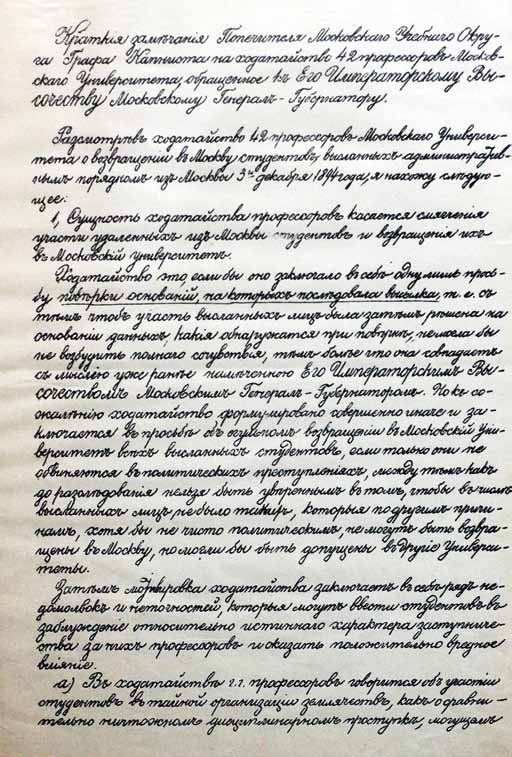 Краткія замѣчанія Попечителя Московскаго Учебнаго Окру-
га Графа Капниста на ходатайство 42 профессоровъ Москов-
скаго Университета, обращенное къ Его Императорскому Вы-
сочеству Московскому Генералъ-Губернатору.
Разсмотрѣвъ ходатайство 42 профессоровъ Московскаго Универси-
тета о возвращеніи въ Москву студентовъ, высланныхъ административ-
нымъ порядкомъ изъ Москвы 3го декабря 1894 года, я нахожу слѣдую-
щее:
1, Сущность ходатайства профессоровъ касается смягченія
участи удаленныхъ изъ Москвы студентовъ и возвращенія ихъ
въ Московскій университетъ.
Ходатайство это, если бы оно заключало въ себѣ одну лишь прось-
бу повѣрки основаній, на которыхъ послѣдовала высылка, т. е. съ
тѣмъ чтобъ участь высланныхъ лицъ была затѣмъ рѣшена на
основаніи данныхъ, какія обнаружатся при повѣркѣ, не могла бы
не возбудить полнаго сочувствія, тѣмъ болѣе что она совпадаетъ
съ мыслею уже ранѣе намѣченною Его Императорскимъ Вы-
сочествомъ Московскимъ Генералъ-Губернаторомъ. Но къ со-
жалѣнію ходатайство формулировано совершенно иначе и за-
ключается въ просьбѣ объ огульномъ возвращеніи въ Московскій Уни-
верситетъ всѣхъ высланныхъ студентовъ, если только они не
обвиняются въ политическихъ преступленіяхъ, между тѣмъ какъ
до разслѣдованія нельзя быть увѣреннымъ въ томъ, чтобы въ числѣ
высланныхъ лицъ не было такихъ, которые по другимъ причи-
намъ, хотя бы не чисто политическимъ, не могутъ быть возвра-
щены въ Москву, но могли бы быть допущены въ другіе Универси-
теты.
Затѣмъ мотивировка ходатайства заключаетъ въ себѣ рядъ не-
домолвокъ и неточностей, которыя могутъ ввести студентовъ въ
заблужденіе относительно истиннаго характера заступниче-
ства за нихъ профессоровъ и оказать положительно вредное
вліяніе.
а) Въ ходатайствѣ г.г. профессоровъ говорится объ участіи
студентовъ въ тайной организаціи землячествъ, какъ о сравни-
тельно ничтожномъ дисциплинарномъ проступкѣ, могущемъ